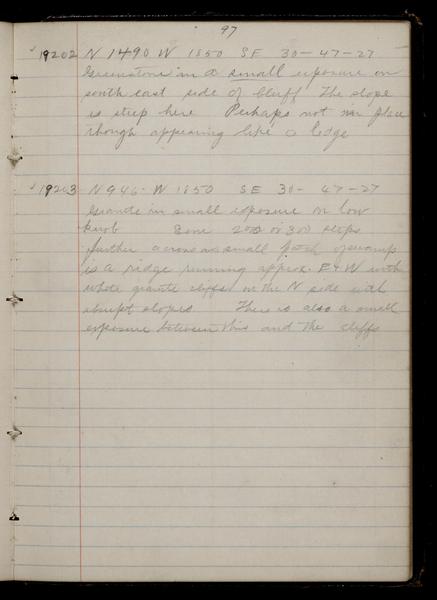 97
19202 N 1490 W 1850 SE 30-47-27
Greenstone in a small exposure on
south east side of bluff The slope
is steep here Perhaps not in place
though appearing like a ledge
19203 N 946 W 1850 SE 30-47-27
Granite in small exposure on low
knob Some 200 or 300 steps
further across a small patch of swamp
is a ridge running approx. E & W with
white granite cliffs on the N side with
abrupt slopes There is also a small
exposure between this and the cliffs